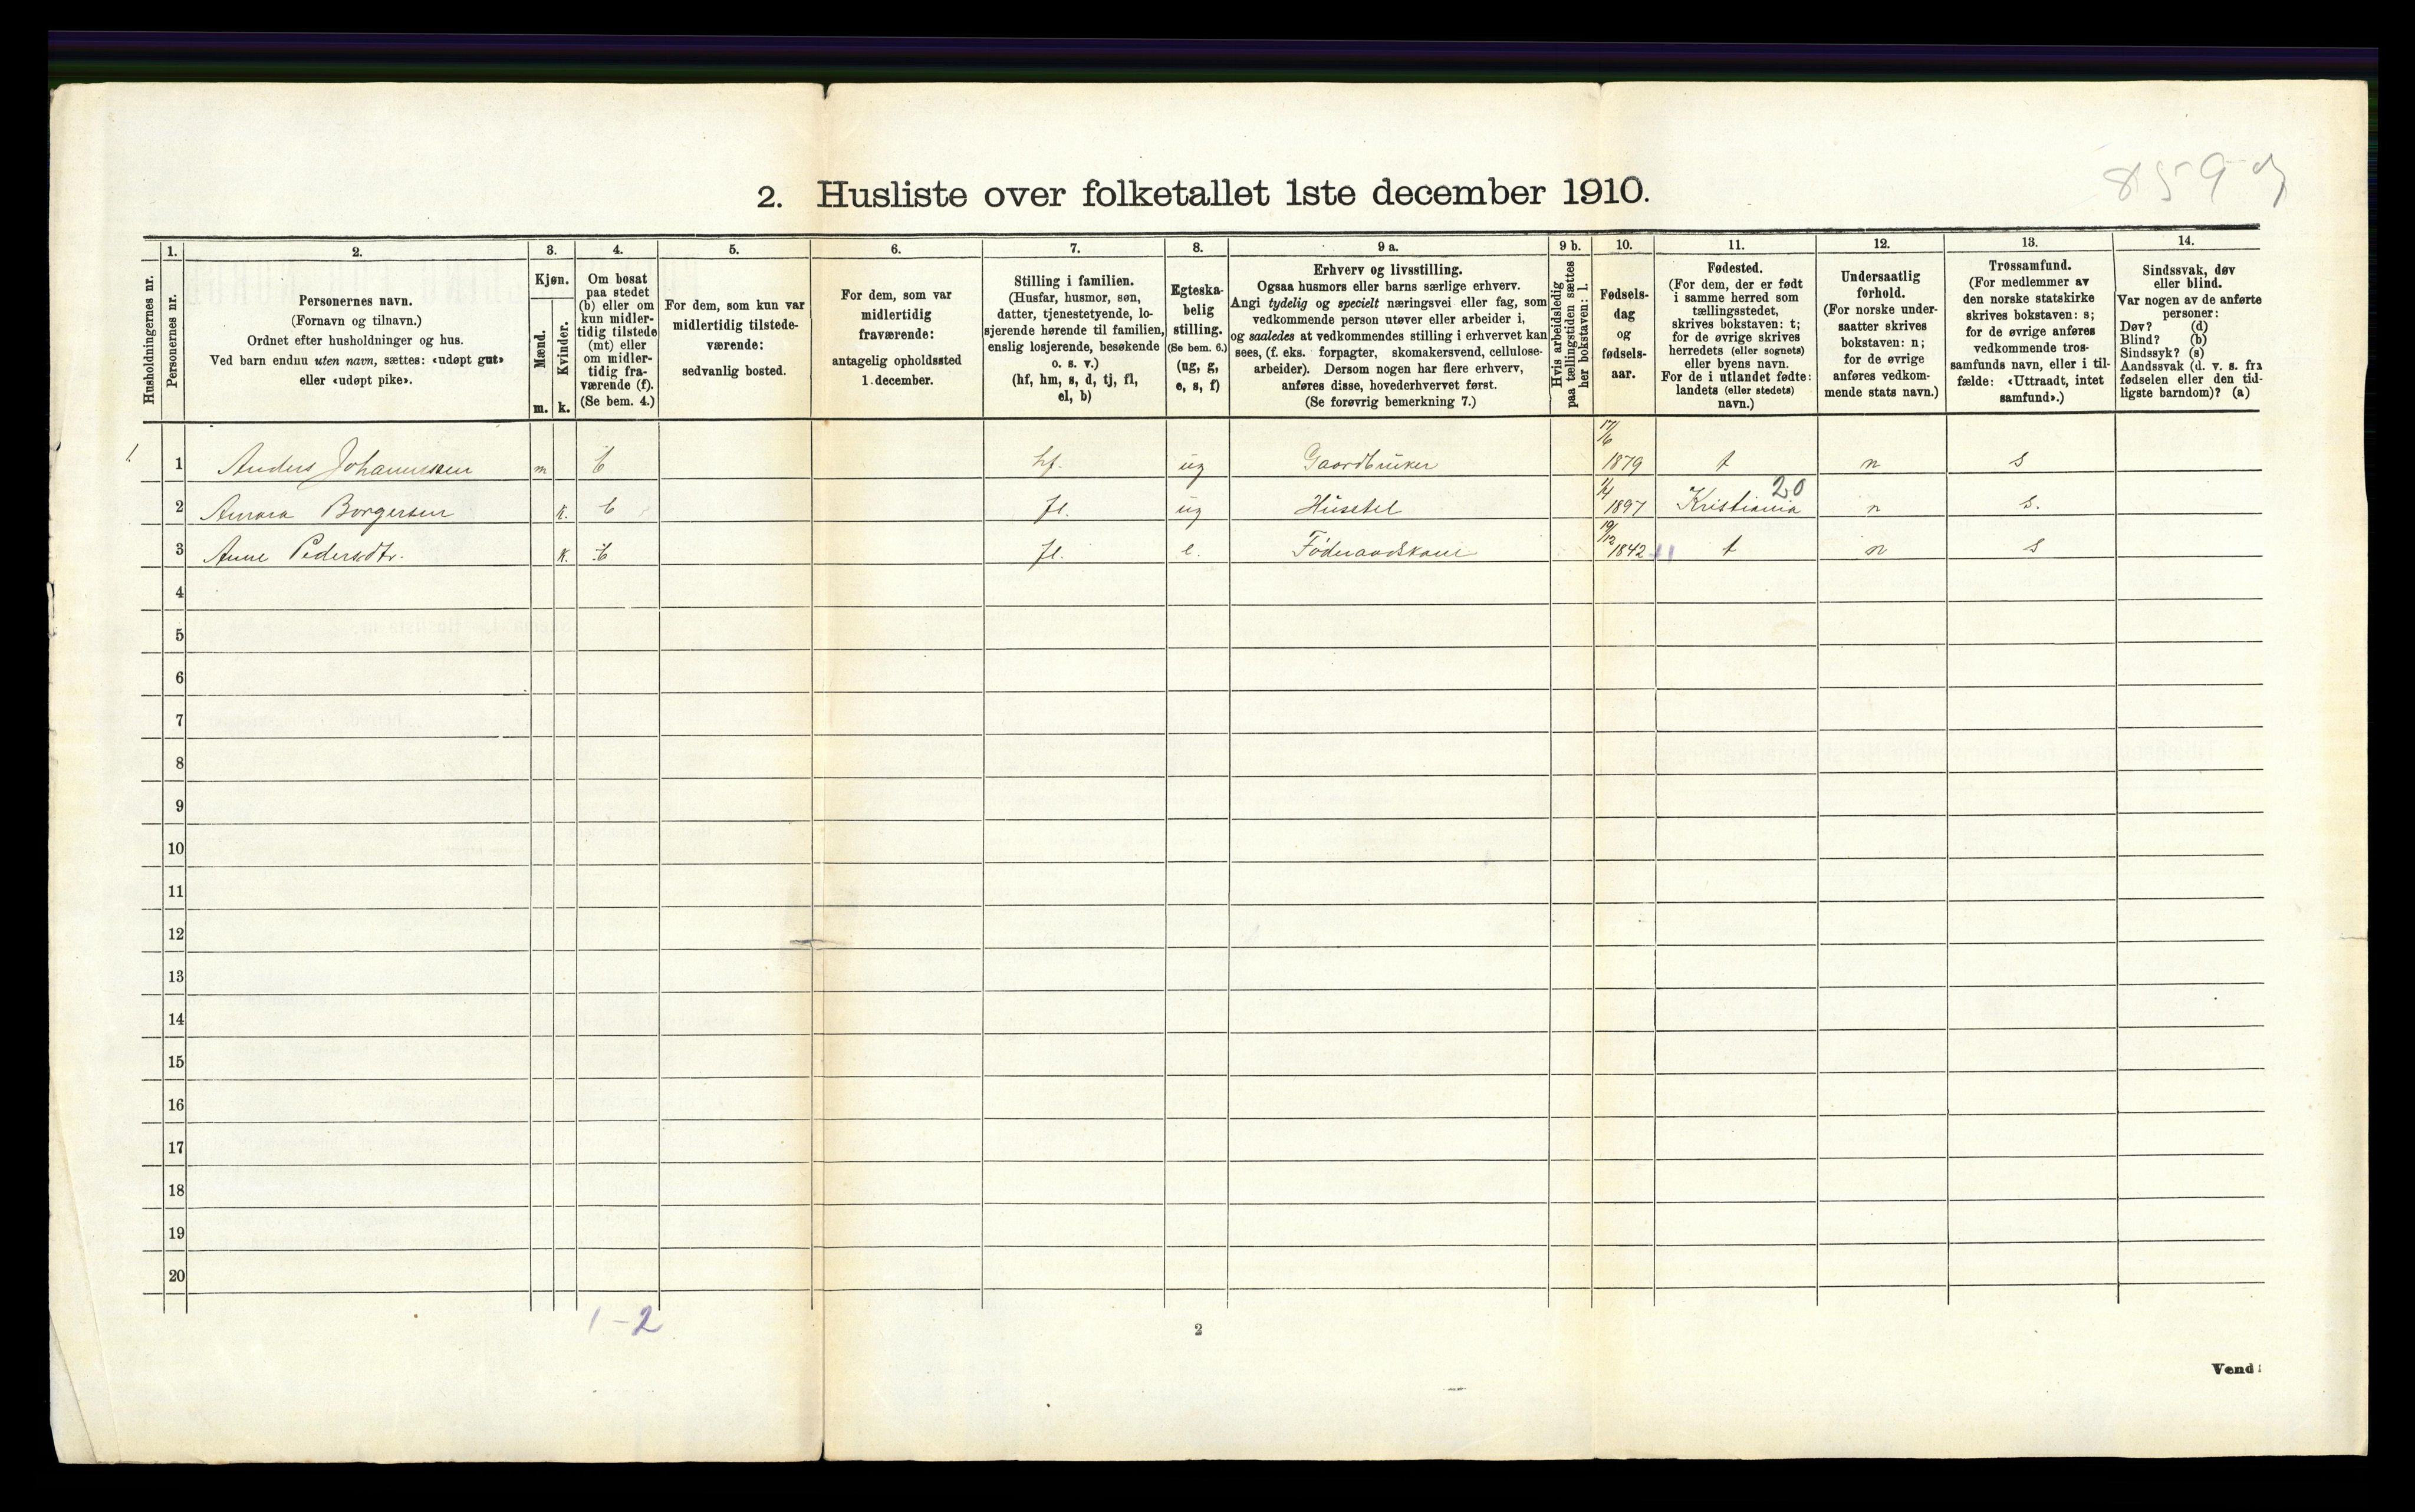 2. Husliste over folketallet 1ste december 1910.
Husholdningernes nr.
1.
Personernes nr.
2.
Personernes navn.
(Fornavn og tilnavn.)
Ordnet efter husholdninger og hus.
Ved barn endnu uten navn, sættes: «udøpt gut»
eller «udøpt pike».
3.
Kjøn.
Mænd.
Kvinder.
m. k.
4.
Om bosat
paa stedet
(b) eller om
kun midler-
tidig tilstede
(mt) eller
om midler-
tidig fra-
værende (f).
(Se bem. 4.)
5.
For dem, som kun var
midlertidig tilstede-
værende:
sedvanlig bosted.
6.
For dem, som var
midlertidig
fraværende:
antagelig opholdssted
1. december.
7.
Stilling i familien.
(Husfar, husmor, søn,
datter, tjenestetyende, lo-
sjerende hørende til familien,
enslig losjerende, besøkende
o. s. v.)
(hf, hm, s, d, tj, fl,
el, b)
8.
Egteska-
belig
stilling.
(Se bem. 6.)
(ug, g,
e, s, f)
9 a.
Erhverv og livsstilling.
Ogsaa husmors eller barns særlige erhverv.
Angi tydelig og specielt næringsvei eller fag, som
vedkommende person utøver eller arbeider i,
og saaledes at vedkommendes stilling i erhvervet kan
sees, (f. eks. forpagter, skomakersvend, cellulose-
arbeider). Dersom nogen har flere erhverv,
anføres disse, hovederhvervet først.
(Se forøvrig bemerkning 7.)
9 b.
Hvis arbeidsledig
paa tællingstiden sættes
her bokstaven: l.
10.
Fødsels-
dag
og
fødsels-
aar.
11.
Fødested.
(For dem, der er født
i samme herred som
tællingsstedet,
skrives bokstaven: t;
for de øvrige skrives
herredets (eller sognets)
eller byens navn.
For de i utlandet fødte:
landets (eller stedets)
navn.)
12.
Undersaatlig
forhold.
(For norske under-
saatter skrives
bokstaven: n;
for de øvrige
anføres vedkom-
mende stats navn.)
13.
Trossamfund.
(For medlemmer av
den norske statskirke
skrives bokstaven: s;
for de øvrige anføres
vedkommende tros-
samfunds navn, eller i til-
fælde: «Uttraadt, intet
samfund».)
14.
Sindssvak, døv
eller blind.
Var nogen av de anførte
personer:
Døv? (d)
Blind? (b)
Sindssyk? (s)
Aandssvak (d. v. s. fra
fødselen eller den tid-
ligste barndom)? (a)
1. 1 Anders Johannessen m b hf. ug Gaardbruker 17/6 1879 t n s
2 Borgersen k. b fl. ug Husstel 1897 Kristiania 20 n s.
3 Anne Pedersdtr. k. b fl. e. Føderaadskone 19/12 1842 t n s
4
5
6
7
8
9
10
11
12
13
14
15
16
17
18
19
20
1-2
2
Vend!